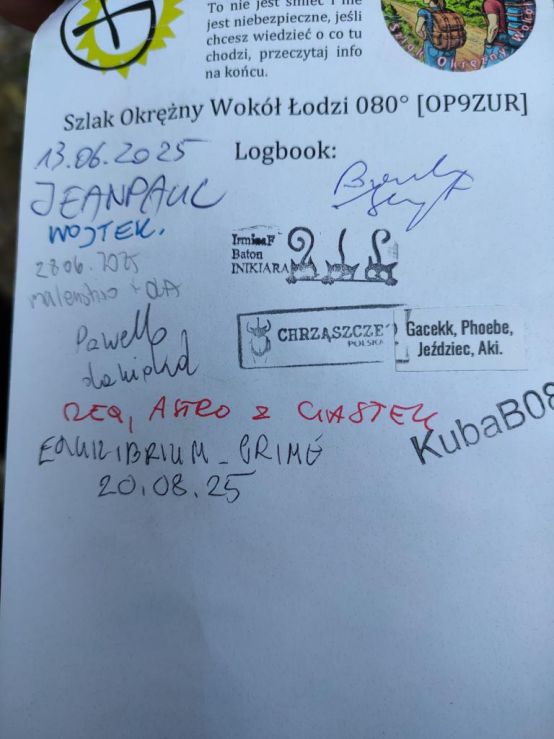 To nie jest śmieć i nie
jest niebezpieczne, jeśli
chcesz wiedzieć o co tu
chodzi, przeczytaj info
na końcu.
Szlak Okrężny Wokół
Szlak Okrężny Wokół Łodzi 080° [OP9ZUR]
13.06.2025
Logbook:
JEANPAUL
WOJTEK.
28 06. 2025
Irmina F
Baton
INIKIARA
malenstwo + OLA
Pawełło
CHRZĄSZCZE
POLSKA
Gacekk, Phoebe,
Jeździec, Aki.
REQ, ASTRO z CIASTEK
KubaB08
EQUILIBRIUM_GRIMÉ
20.08.25